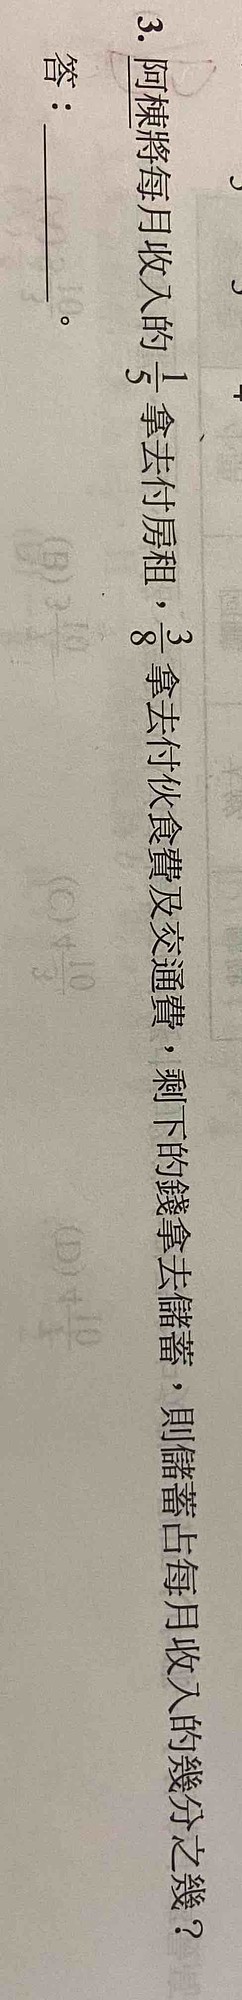 3. 阿棟將每月收入的 1/5 拿去付房租，3/8 拿去付伙食費及交通費，剩下的錢拿去儲蓄，則儲蓄占每月收入的幾分之幾？
答：________。